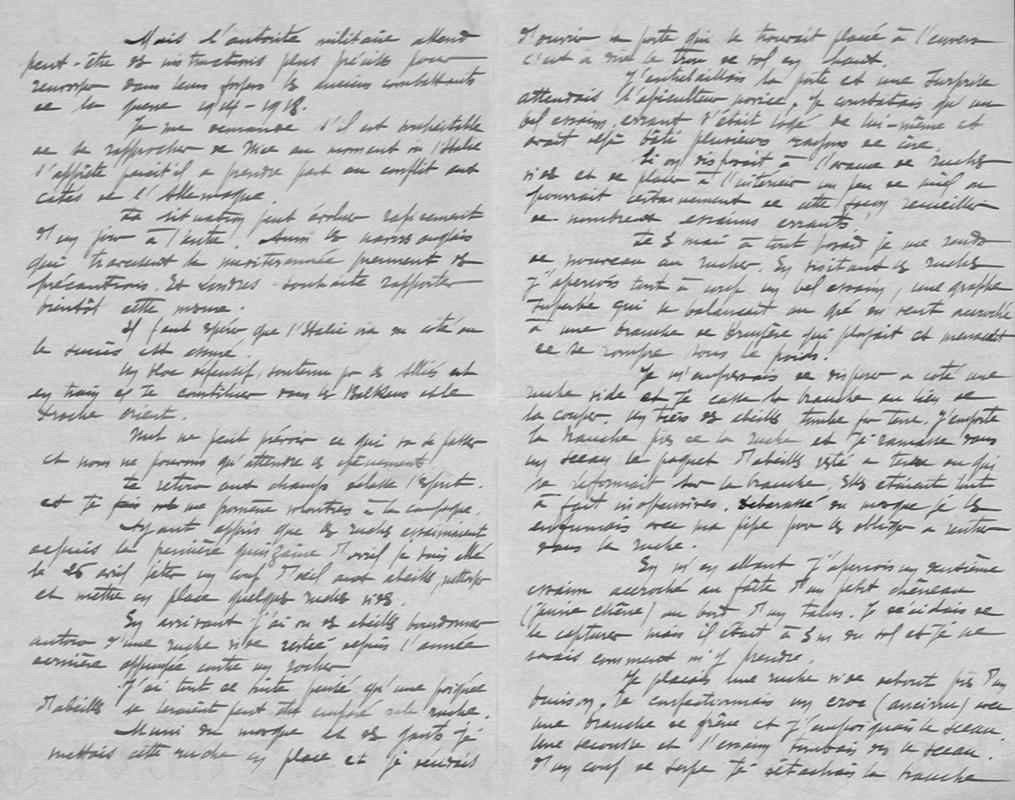 Mais l'autorité militaire attend
peut-être des instructions plus précises pour
renvoyer dans leurs foyers les anciens combattants
de la guerre 1914-1918.
Je me demande s'il est souhaitable
de se rapprocher de Nice au moment où l'Italie
s'apprête paraît-il a prendre part au conflit aux
côtés de l'Allemagne.
La situation peut évoluer rapidement
d'un jour à l'autre. Aussi les navires anglais
qui traversent la mediterranée prennent des
précautions. Et Londres souhaite rapporter
bientôt cette mesure.
Il faut espérer que l'Italie ira du coté où
le succès est assuré.
Un bloc défensif, soutenu par les Alliés est
en train de se constituer dans les Balkans et le
Proche Orient.
Nul ne peut prévoir ce qui va se passer
et nous ne pouvons qu'attendre les évènements.
Le retour aux champs délasse l'esprit.
et je me promène volontiers à la campagne.
Ayant appris que les ruches essaimaient
depuis la première quinzaine d'avril je suis allé
le 25 avril jeter un coup d'oeil aux abeilles
et mettre en place quelques ruches vides.
En arrivant j'ai vu des abeilles bourdonner
autour d'une ruche vide restée depuis l'année
dernière appuyée contre un rocher
J'ai tout de suite pensé qu'une poignée
d'abeilles se seraient peut être emparé de la ruche.
Muni du masque et de gants je
mettais cette ruche en place et je venais
d'ouvrir la porte qui se trouvait placé à l'envers
c'est a dire le trou de vol en haut.
J'entrebaillais la porte et une surprise
attendait l'apiculteur novice. Je constatais qu'un
bel essaim, errant s'était logé de lui-même et
avait déjà bâti plusieurs rayons de cire.
Si on disposait à l'avance de ruches
vides et de placer à l'intérieur un peu de miel on
pourrait certainement de cette façon recueillir
de nombreux essaims errants.
Le 5 mai à tout hasard je me rends
de nouveau au rucher. En visitant les ruches
j'aperçois tout à coup un bel essaim, une grappe
superbe qui se balançait au gré du vent accroché
à une branche de bruyère qui ployait et menaçait
de se rompre sous le poids.
Je m'empressais de disposer a coté une
ruche vide et je casse la branche au lieu de
la couper. Un tiers des abeilles tombe par terre. J'emporte
la branche près de la ruche et je ramasse dans
un seau le paquet d'abeilles resté a terre ou qui
se reformait sur la branche. Elles étaient tout
à fait inoffensives. Debarassé du masque je les
enfumais avec ma pipe pour les obliger a rentrer
dans la ruche.
En m'en allant j'aperçois un deuxième
essaim accroché au faîte d'un petit chêneau
(jeune chêne) au bord d'un talus. Je décidais de
le capturer mais il était à 5m du sol et je ne
savais comment m'y prendre.
Je plaçais une ruche vide debout près d'un
buisson, je confectionnais un croc (ancirou) avec
une branche de frêne et j'empoignais le seau.
Une secousse et l'essaim tombait dans le seau.
D'un coup de serpe je détachais la branche